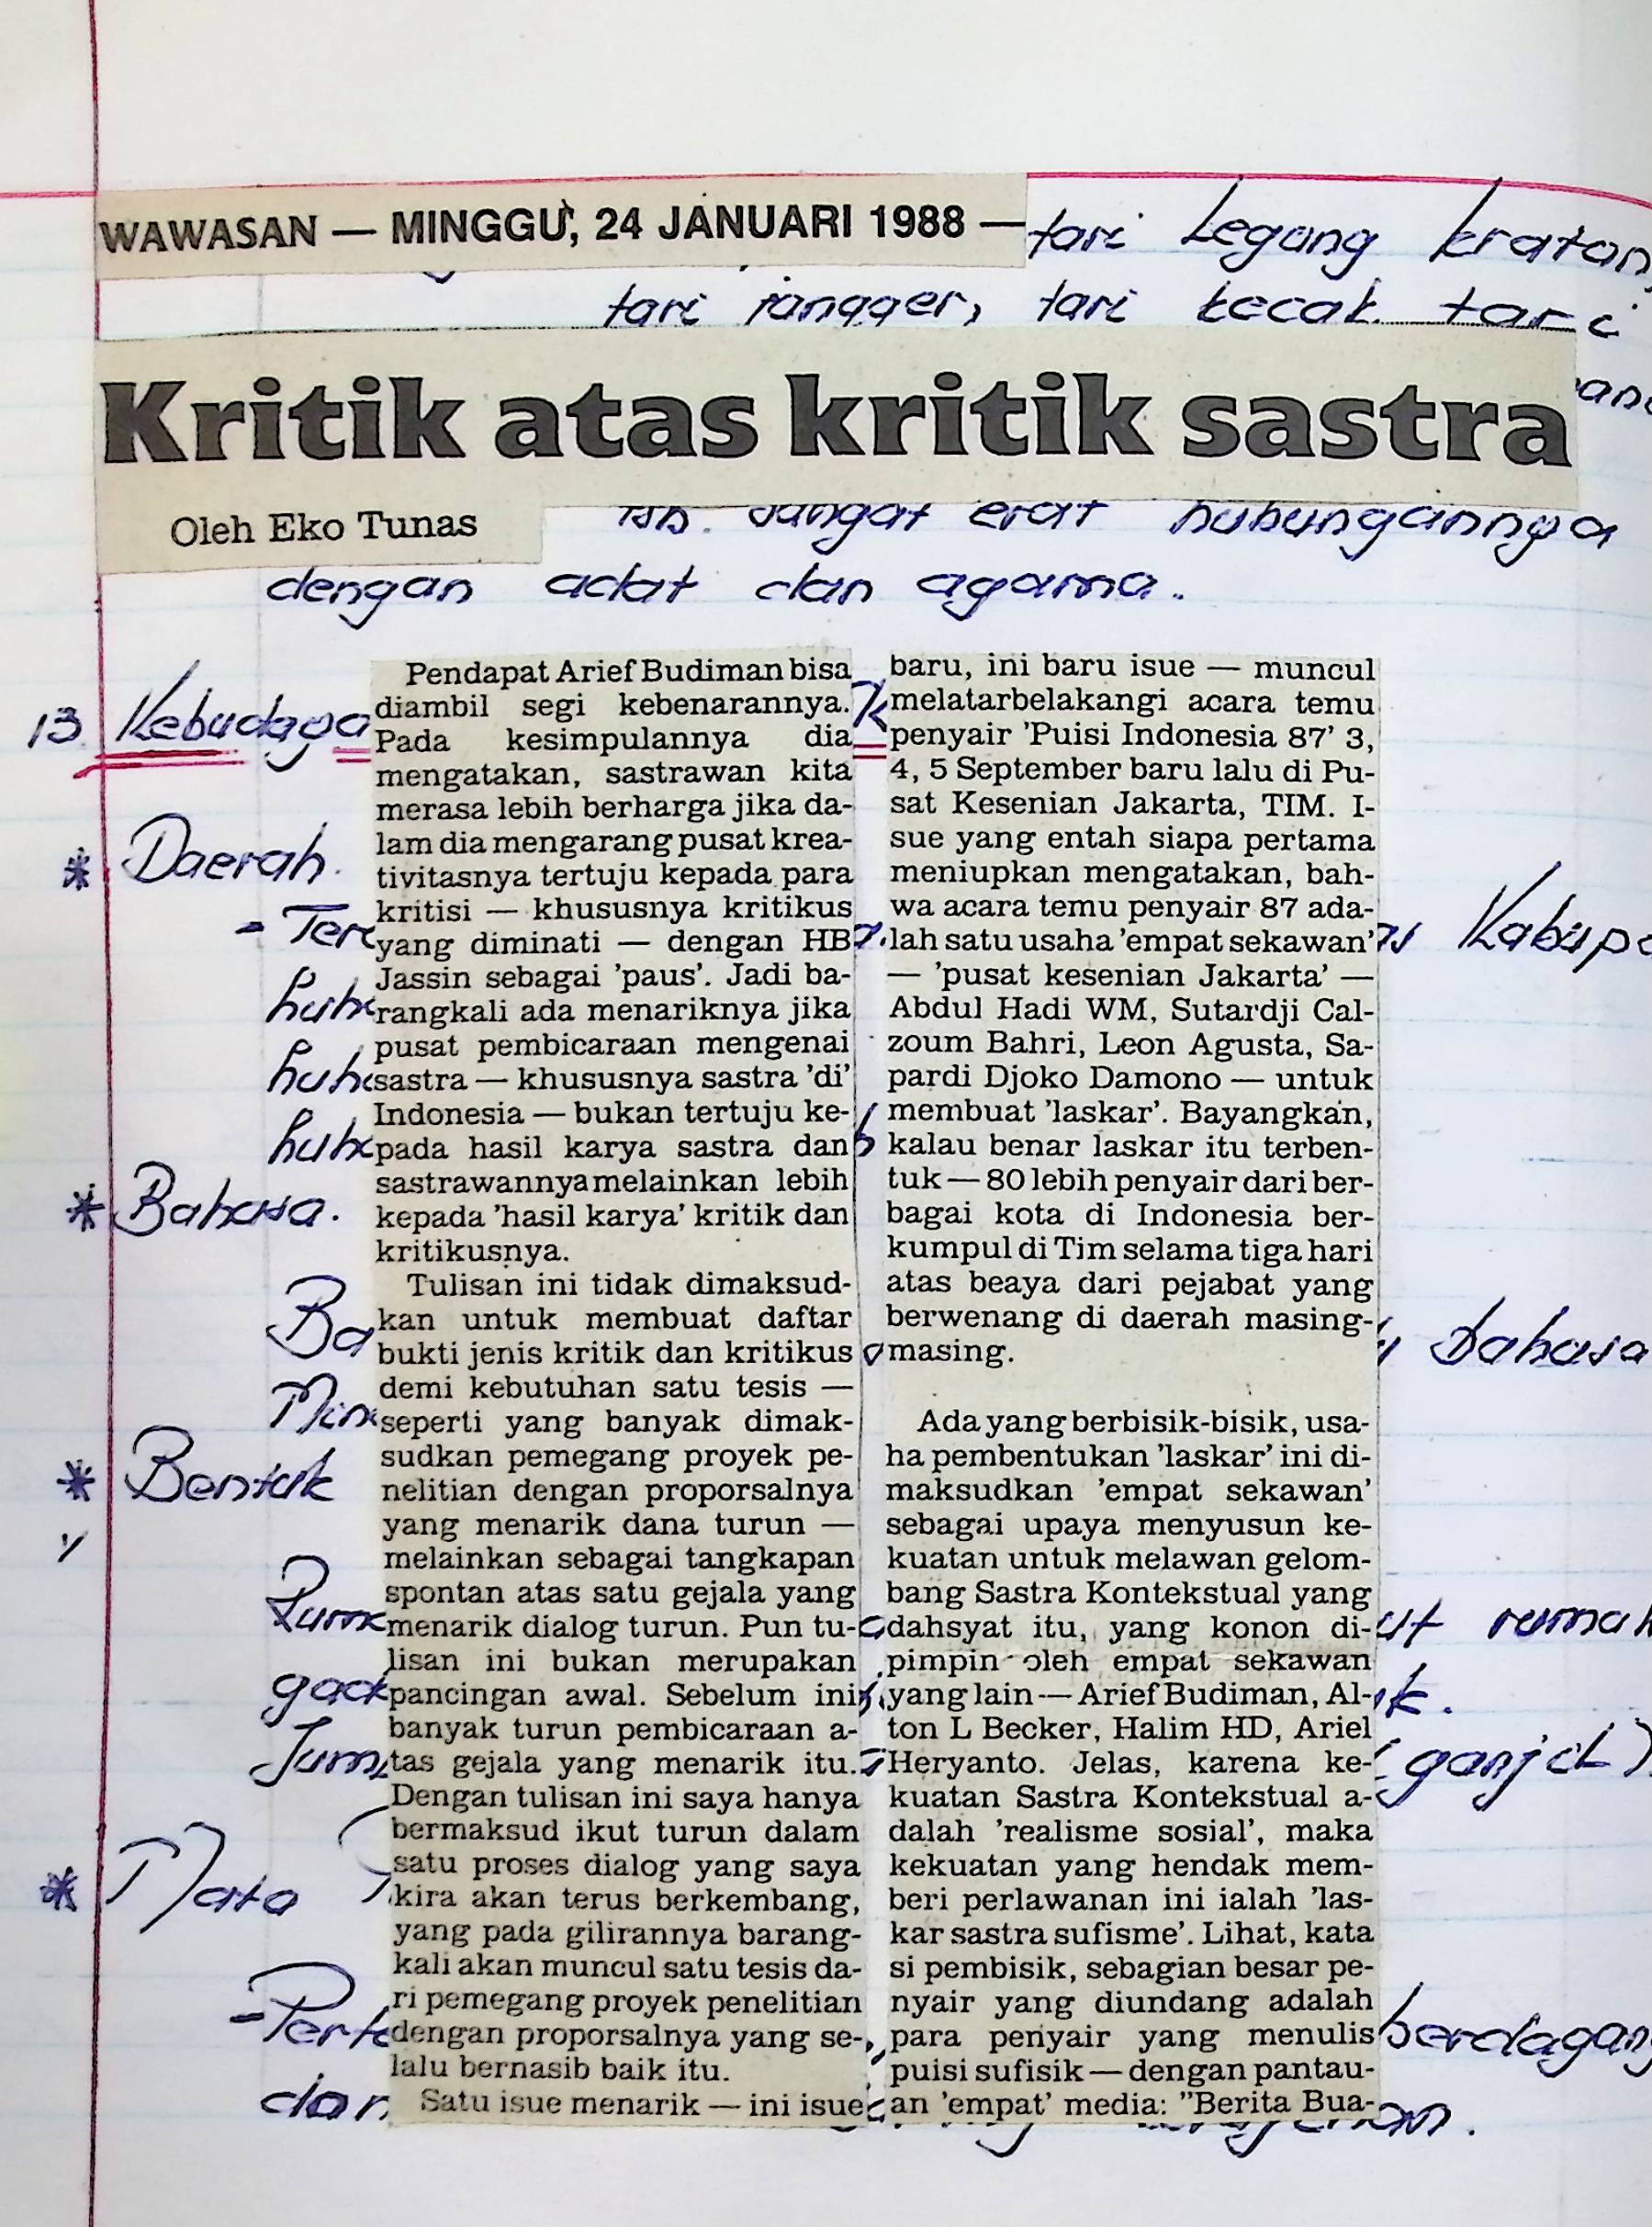 WAWASAN — MINGGU, 24 JANUARI 1988 —
tari Legong kraton
tari jangger, tari kecak tari
Kritik atas kritik sastra
Oleh Eko Tunas
sangat erat hubungannya
dengan adat dan agama.
Pendapat Arief Budiman bisa
diambil segi kebenarannya.
Pada kesimpulannya dia
mengatakan, sastrawan kita
merasa lebih berharga jika da-
lam dia mengarang pusat krea-
tivitasnya tertuju kepada para
kritisi — khususnya kritikus
yang diminati — dengan HB
Jassin sebagai 'paus'. Jadi ba-
rangkali ada menariknya jika
pusat pembicaraan mengenai
sastra — khususnya sastra 'di'
Indonesia — bukan tertuju ke-
pada hasil karya sastra dan
sastrawannya melainkan lebih
kepada 'hasil karya' kritik dan
kritikusnya.
Tulisan ini tidak dimaksud-
kan untuk membuat daftar
bukti jenis kritik dan kritikus
demi kebutuhan satu tesis —
seperti yang banyak dimak-
sudkan pemegang proyek pe-
nelitian dengan proporsalnya
yang menarik dana turun —
melainkan sebagai tangkapan
spontan atas satu gejala yang
menarik dialog turun. Pun tu-
lisan ini bukan merupakan
pancingan awal. Sebelum ini
banyak turun pembicaraan a-
tas gejala yang menarik itu.
Dengan tulisan ini saya hanya
bermaksud ikut turun dalam
satu proses dialog yang saya
kira akan terus berkembang,
yang pada gilirannya barang-
kali akan muncul satu tesis da-
ri pemegang proyek penelitian
dengan proporsalnya yang se-
lalu bernasib baik itu.
Satu isue menarik — ini isue
baru, ini baru isue — muncul
melatarbelakangi acara temu
penyair 'Puisi Indonesia 87' 3,
4, 5 September baru lalu di Pu-
sat Kesenian Jakarta, TIM. I-
sue yang entah siapa pertama
meniupkan mengatakan, bah-
wa acara temu penyair 87 ada-
lah satu usaha 'empat sekawan'
— 'pusat kesenian Jakarta' —
Abdul Hadi WM, Sutardji Cal-
zoum Bahri, Leon Agusta, Sa-
pardi Djoko Damono — untuk
membuat 'laskar'. Bayangkan,
kalau benar laskar itu terben-
tuk — 80 lebih penyair dari ber-
bagai kota di Indonesia ber-
kumpul di Tim selama tiga hari
atas beaya dari pejabat yang
berwenang di daerah masing-
masing.
Ada yang berbisik-bisik, usa-
ha pembentukan 'laskar' ini di-
maksudkan 'empat sekawan'
sebagai upaya menyusun ke-
kuatan untuk melawan gelom-
bang Sastra Kontekstual yang
dahsyat itu, yang konon di-
pimpin oleh empat sekawan
yang lain — Arief Budiman, Al-
ton L Becker, Halim HD, Ariel
Heryanto. Jelas, karena ke-
kuatan Sastra Kontekstual a-
dalah 'realisme sosial', maka
kekuatan yang hendak mem-
beri perlawanan ini ialah 'las-
kar sastra sufisme'. Lihat, kata
si pembisik, sebagian besar pe-
nyair yang diundang adalah
para penyair yang menulis
puisi sufisik — dengan pantau-
an 'empat' media: "Berita Bua-
13. Kebudaya
* Daerah.
* Bahasa.
bahasa
* Bentuk
rumah
(ganjil)
* Mata
berdagang
dan